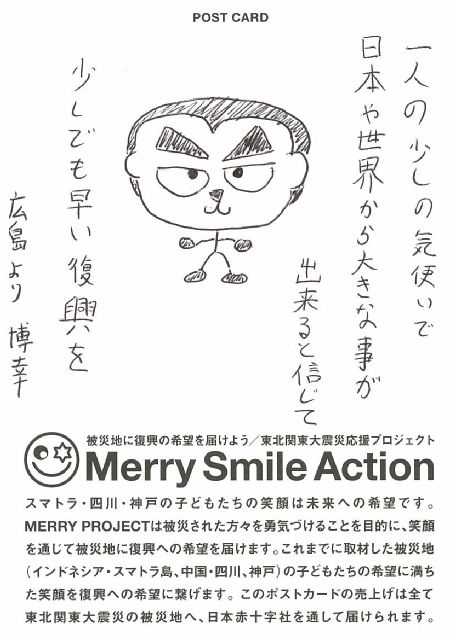 POST CARD
一人の少しの気使いで
日本や世界から大きな事が
出来ると信じて
少しでも早い復興を
広島より 博幸
被災地に復興の希望を届けよう／東北関東大震災応援プロジェクト
Merry Smile Action
スマトラ・四川・神戸の子どもたちの笑顔は未来への希望です。
MERRY PROJECTは被災された方々を勇気づけることを目的に、笑顔
を通じて被災地に復興への希望を届けます。これまでに取材した被災地
（インドネシア・スマトラ島、中国・四川、神戸）の子どもたちの希望に満ち
た笑顔を復興への希望に繋げます。このポストカードの売上げは全て
東北関東大震災の被災地へ、日本赤十字社を通して届けられます。